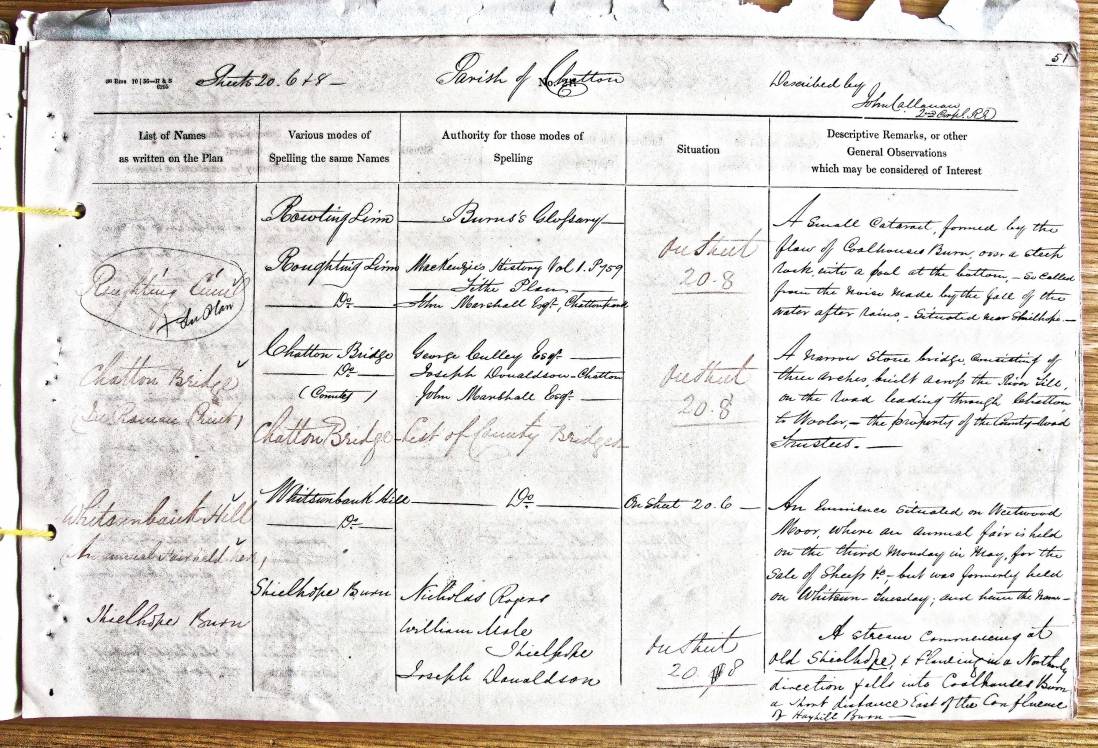 51
Sheets 20.6 & 8 -
Parish of Chatton
Described by
John Callanan
2nd Corpl. RE
List of Names
as written on the Plan
Various modes of
Spelling the same Names
Authority for those modes of
Spelling
Situation
Descriptive Remarks, or other
General Observations
which may be considered of Interest
Roughting Linn
In Plan
Rowting Linn
Burns's Glossary
Roughting Linn
Mackenzie's History Vol 1. P 759
Do
Tithe Plan
John Marshall Esqr. Chatton
On Sheet
20.8
A Small Cataract, formed by the
flow of Coalhouses Burn, over a steep
Rock, into a pool at the bottom, - So Called
from the Noise made by the fall of the
water after rains, - Situated near Shielhope. -
Chatton Bridge
Chatton Bridge
George Culley Esqr.
Do
Joseph Donaldson - Chatton
(County)
John Marshall Esqr.
Chatton Bridge
List of County Bridges
On Sheet
20.8
A Narrow Stone bridge consisting of
three arches, built across the River Till,
on the road leading through Chatton
to Wooler, - the property of the County Road
Trustees. -
Whitsunbank Hill
(An annual Fair held here)
Whitsunbank Hill
Do
Do
On Sheet 20.6 -
An Eminence situated on Weetwood
Moor, where an annual fair is held
on the third Monday in May, for the
Sale of Sheep &c - but was formerly held
on Whitsun-Tuesday; and hence the Name -
Shielhope Burn
Shielhope Burn
Nicholas Rogers
William Mole
Shielhope
Joseph Donaldson
On Sheet
20 8
A stream commencing at
Old Shielhope, & flowing in a Northerly
direction falls into Coalhouses Burn
a short distance East of the Confluence
of Hayhill Burn -